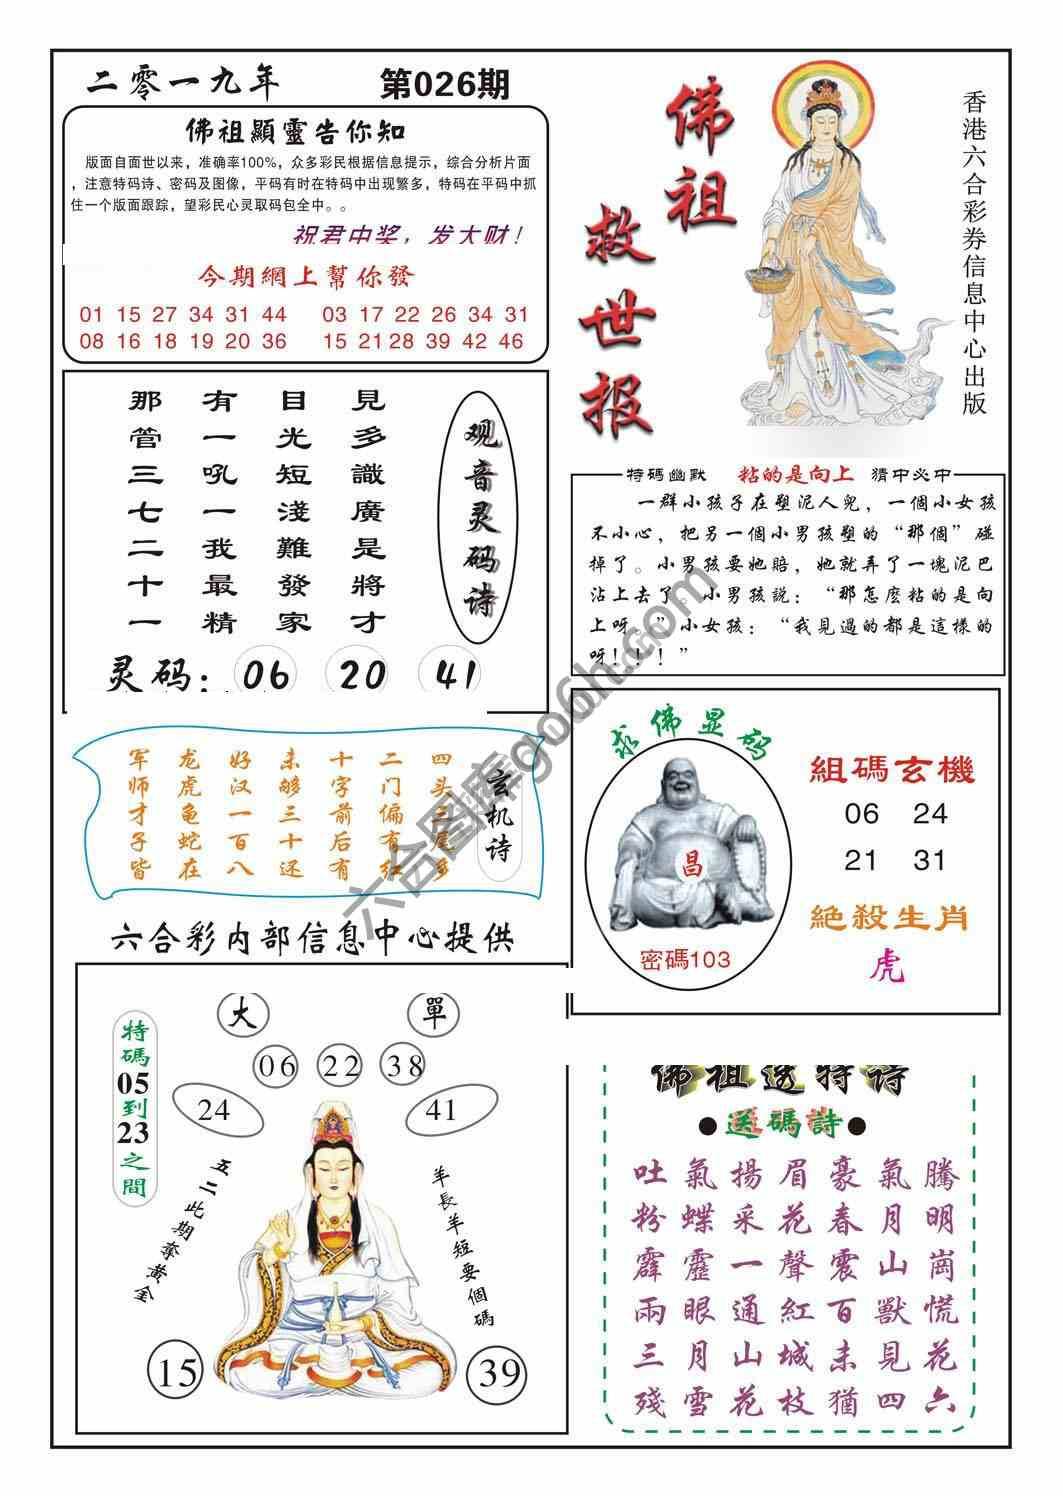 二零一九年
第026期
佛祖顯靈告你知
版面自面世以来，准确率100%，众多彩民根据信息提示，综合分析片面
，注意特码诗、密码及图像，平码有时在特码中出现繁多，特码在平码中抓
住一个版面跟踪，望彩民心灵取码包全中。。
祝君中奖，发大财！
今期網上幫你發
01 15 27 34 31 44 03 17 22 26 34 31
08 16 18 19 20 36 15 21 28 39 42 46
佛祖
救世报
香港六合彩券信息中心出版
观音灵码诗
見多識廣是將才
目光短淺難發家
有一吼一我最精
那管三七二十一
灵码：06 20 41
特碼幽默 粘的是向上 猜中必中
一群小孩子在塑泥人兒，一個小女孩
不小心，把另一個小男孩塑的“那個”碰
掉了。小男孩要她賠，她就弄了一塊泥巴
沾上去了，小男孩説：“那怎麼粘的是向
上呀。”小女孩：“我見過的都是這樣的
呀！！！”
玄机诗
四头三尾多
二门偏有红
十字前后有
未够三十还
好汉一百八
龙虎龟蛇在
军师才子皆
求佛显码
昌
密碼103
組碼玄機
06 24
21 31
絕殺生肖
虎
六合彩内部信息中心提供
大 單
06 22 38
24 41
特碼05到23之間
五二此期奪黃金
羊長羊短要個碼
15 39
佛祖透特诗
●送碼詩●
吐氣揚眉豪氣騰
粉蝶采花春月明
霹靂一聲震山崗
兩眼通紅百獸慌
三月山城未見花
殘雪花枝猶四六
六合图库go6h.com